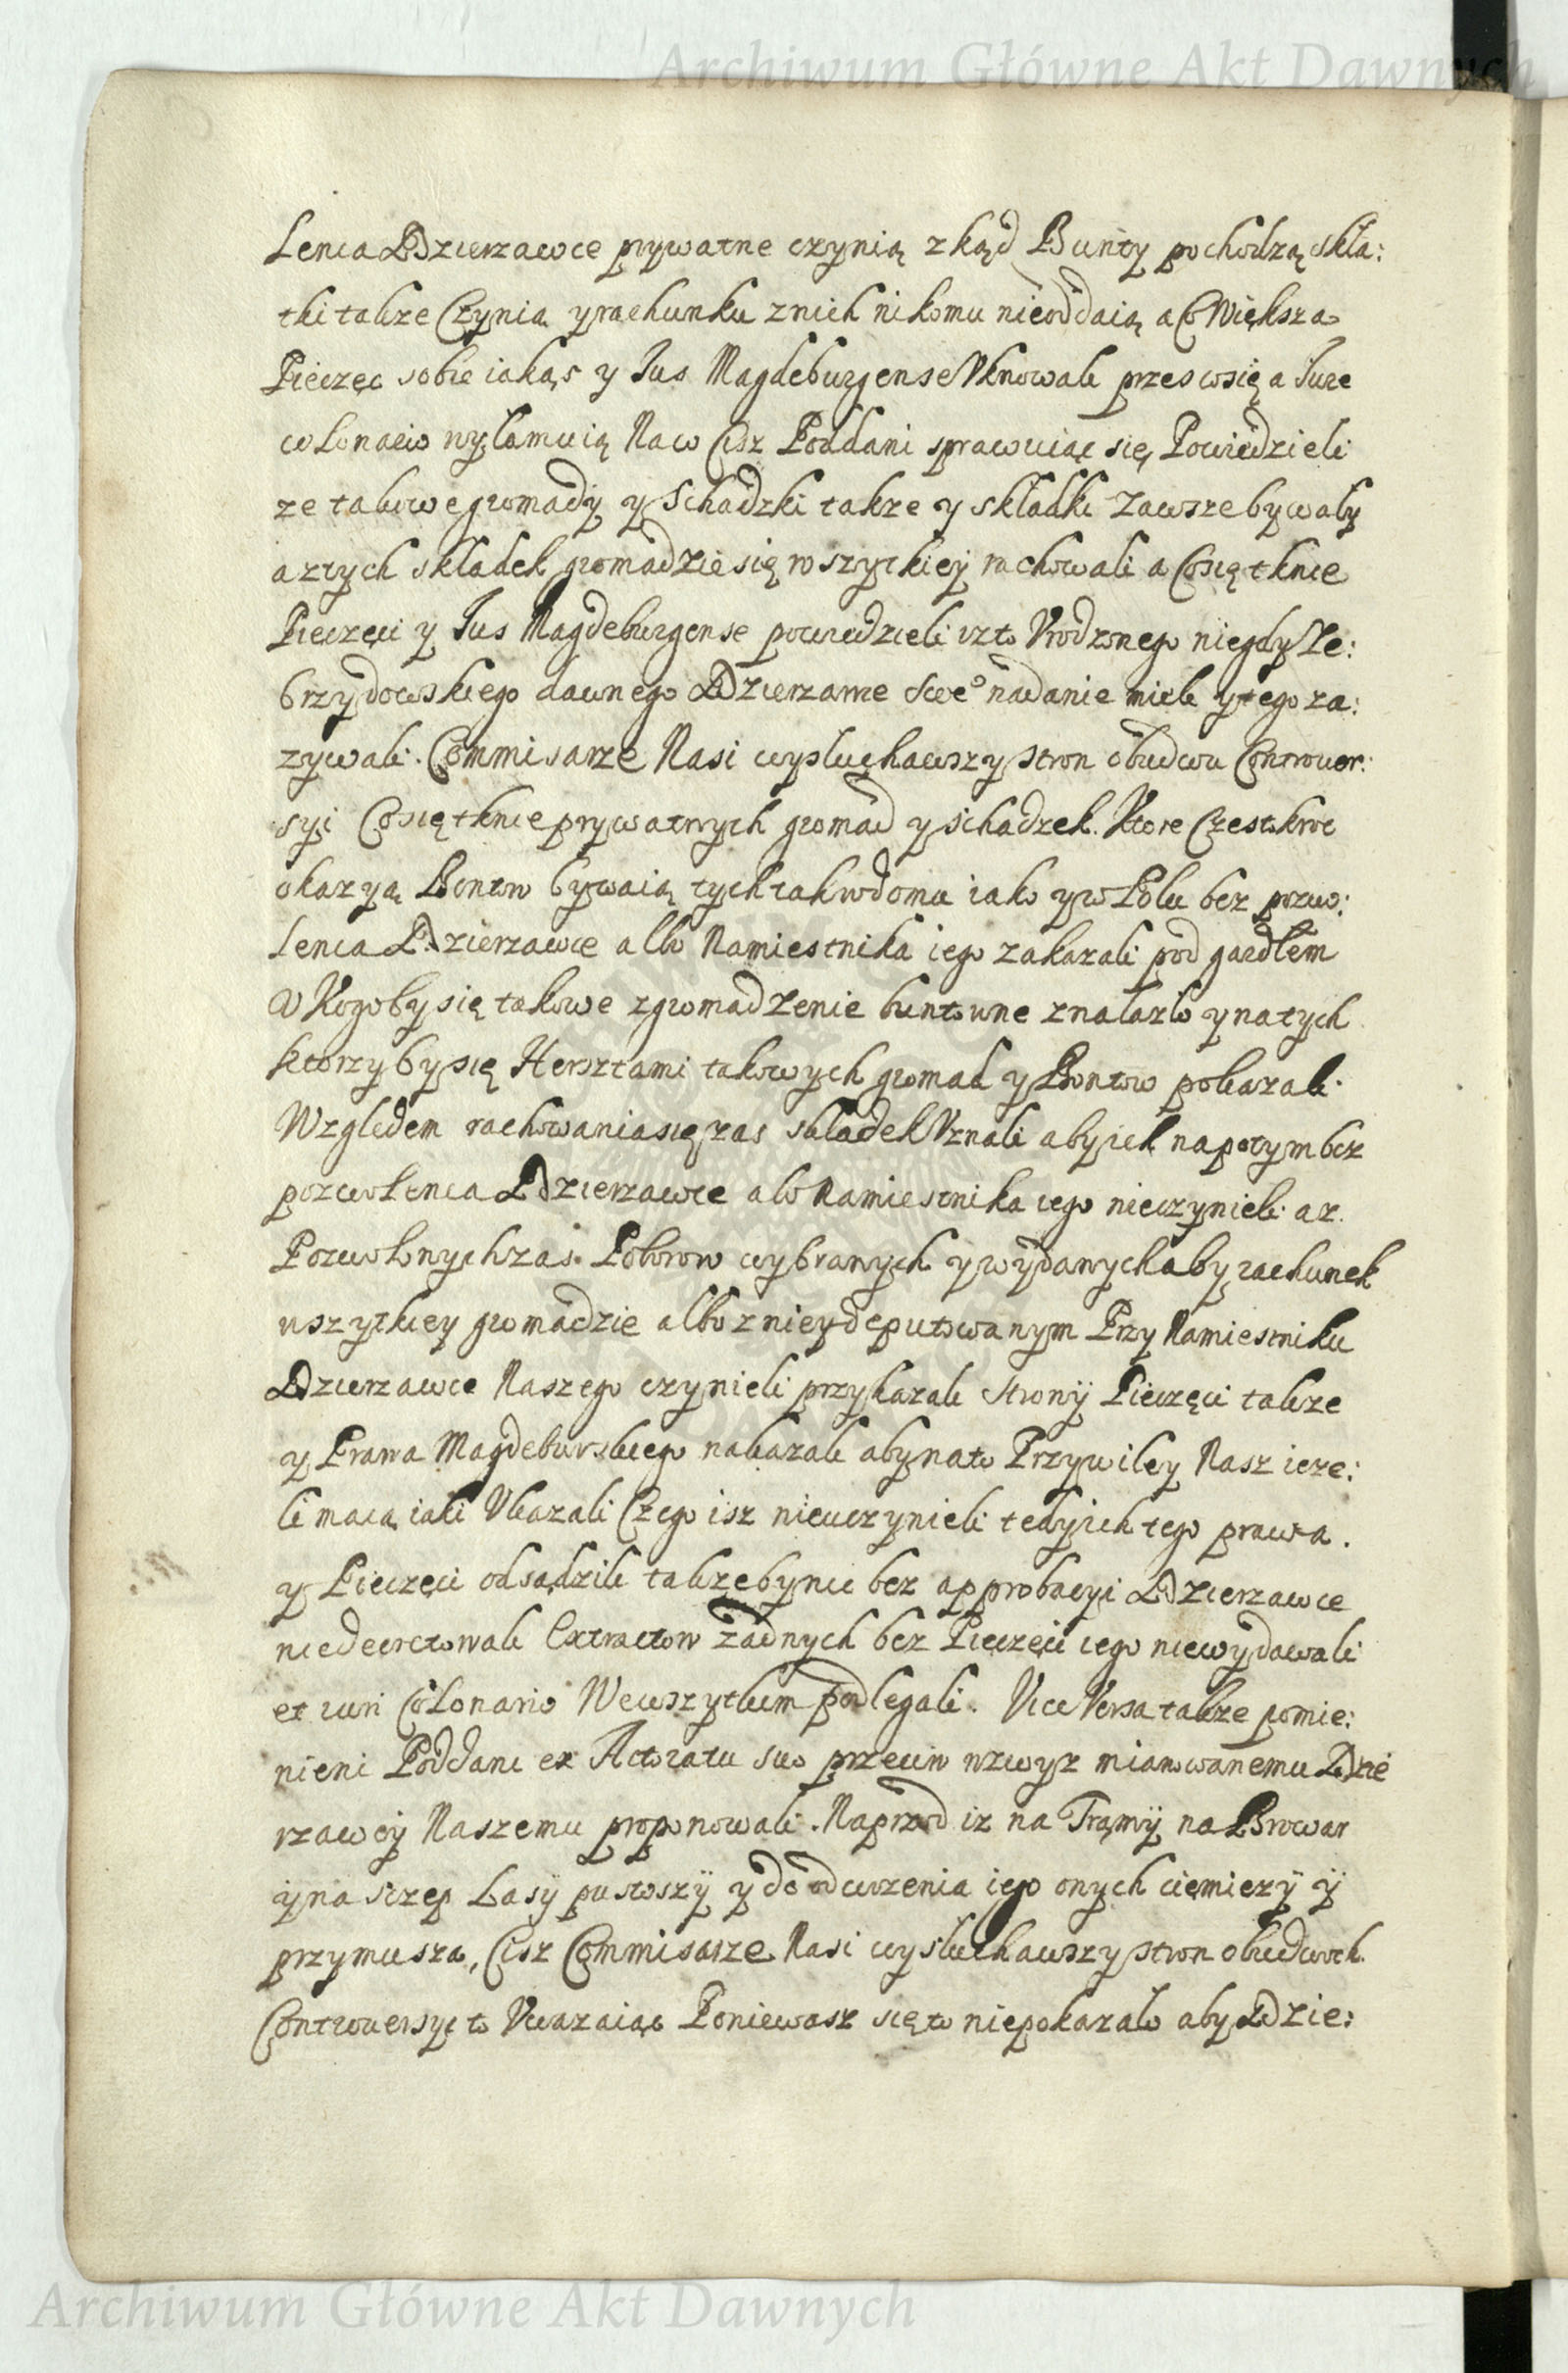 Archiwum Główne Akt Dawnych
lenia Dzierzawce prywatne czynią zkąd Bunty pochodzą skła:
tki takze Czynią y rachunku znich nikomu nieoddaią a Co Większa
Pieczęc sobie iakąs y Jus Magdeburgense Vknowali przes co się a Jure
colonario wyłamuią Naco Cisz Poddani sprawuiąc się Powiedzieli
ze takowe gromady y Schadzki takze y składki zawsze bywały
a ztych składek gromadzie się wszytkiey rachowali a Cosię tknie
Pieczęci y Jus Magdeburgense powiedzieli izto Vrodzonego niegdy Ze:
brzydowskiego dawnego Dzierzawce swe° nadanie mieli y tego za:
zywali. Commisarze Nasi wysłuchawszy stron obudwu Controuer:
syi Cosię tknie prywatnych gromad y schadzek. Ktore Częstokroc
okazyą Bontow bywaią tych tak wdomu iako y w Polu bez pozwo:
lenia Dzierzawce albo Namiestnika iego zakazali pod gardłem
v Kogoby się takowe zgromadzenie buntowne znalazło y natych
ktorzyby się Hersztami takowych gromad y Bontow pokazali.
Względem rachowania się zas składek Vznali aby ich napotym bez
pozwolenia Dzierzawce albo Namiestnika iego nieczynieli az
Pozwolonych zas. Poborow wybranych y wydanych aby rachunek
wszytkiey gromadzie albo zniey deputowanym Przy Namiestniku
Dzierzawce Naszego czynieli przykazali Strony Pieczęci takze
y Prawa Magdeburskiego nakazali aby nato Przywiley Nasz ieze:
li maią iaki Vkazali Czego isz nieuczynieli tedy ich tego prawa.
y Pieczęci odsądzili takze by nic bez approbacyi Dzierzawce
niedecretowali Extractow żadnych bez Pieczęci iego niewydawali
et iuri Colonario Wewszytkim podlegali. Vice Versa takze pomie:
nieni Poddani ex Actoratu suo przeciw wzwyz mianowanemu Dzie
rzawcy Naszemu proponowali. Naprzod iz na Tramy na Browar
y na sczep Lasy pustoszy y do odwozenia iego onych ciemiezy y
przymusza, Cisz Commisarze Nasi wysłuchawszy stron obudwoch
Controuersye to Vwazaiąc Poniewasz się to niepokazało aby Dzie:
Archiwum Główne Akt Dawnych